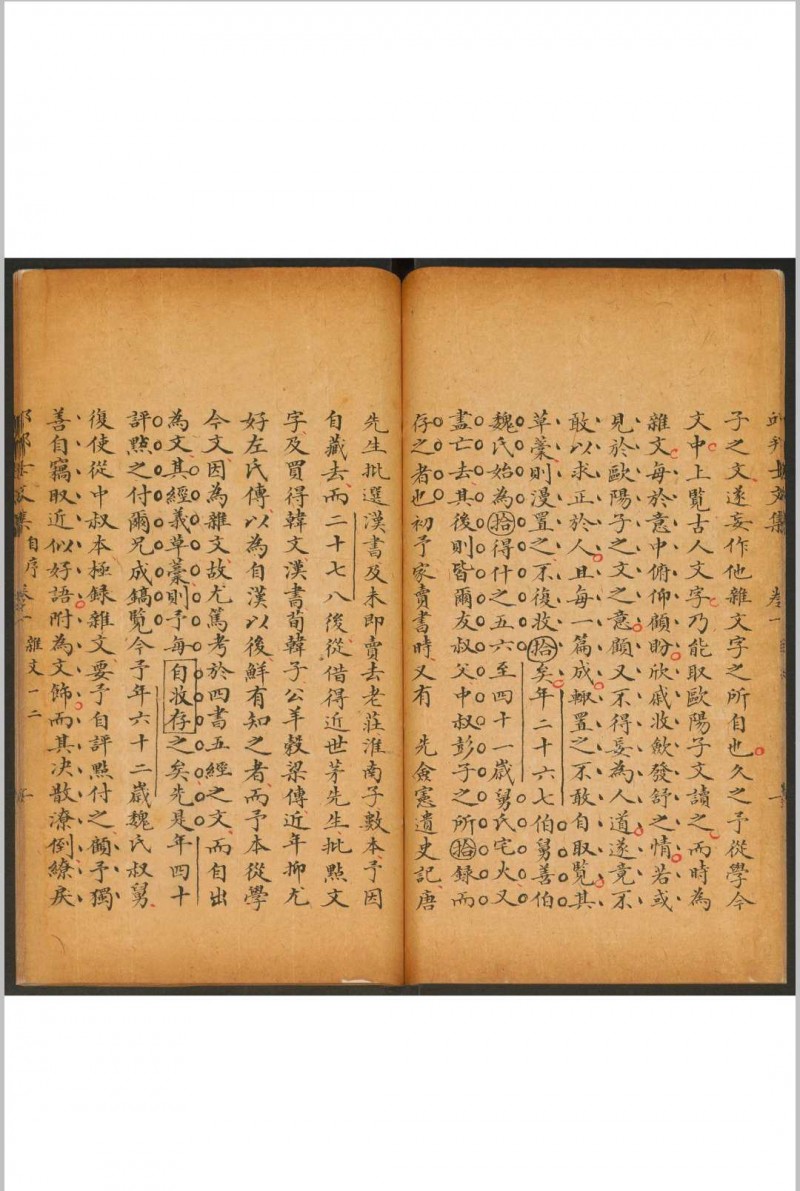 子之文遂妄作他雜文字之所自也久之予從學今
文中上覧古人文字乃能取歐陽子文讀之而時為
雜文每於意中俯仰顧盼欣戚收斂發舒之情若或
見於歐陽子之文之意顧又不得妄為人道遂竟不
敢以求正於人且每一篇成輙置之不敢自取覧其
草藁則漫置之不復收拾矣年二十六七伯舅善伯
魏氏始為拾得什之五六至四十一歲舅氏宅火又
盡亡去其後則皆爾友叔父中叔彭子之所拾録而
存之者也初予家賣書時又有 先僉憲遺史記唐
先生批選漢書及未即賣去老莊淮南子數本予因
自藏去而二十七八後從借得近世茅先生批點文
字及買得韓文漢書荀韓子公羊穀梁傳近年抑尤
好左氏傳以為自漢以後鮮有知之者而予本從學
今文因為雜文故尤篤考於四書五經之文而自出
為文其經義草藁則予每自收存之矣先是年四十
評點之付爾兄成鎬覧今予年六十二歲魏氏叔舅
復使從中叔本極録雜文要予自評點付之顧予獨
善自竊取近似好語附為文飾而其决散潦倒繚戾
自序 卷一 雜文一二